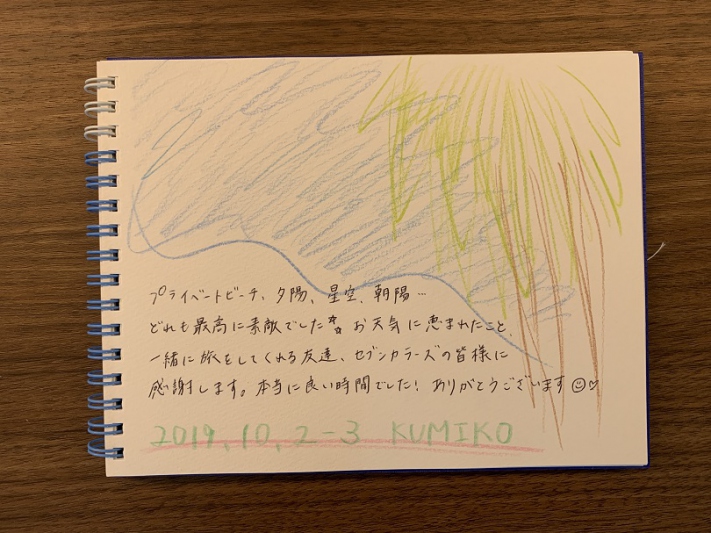 プライベートビーチ、夕陽、星空、朝陽…
どれも最高に素敵でした☆☆ お天気に恵まれたこと、
一緒に旅をしてくれる友達、セブンカラーズの皆様に
感謝します。本当に良い時間でした! ありがとうございます☺♡
2019.10.2-3 KUMIKO